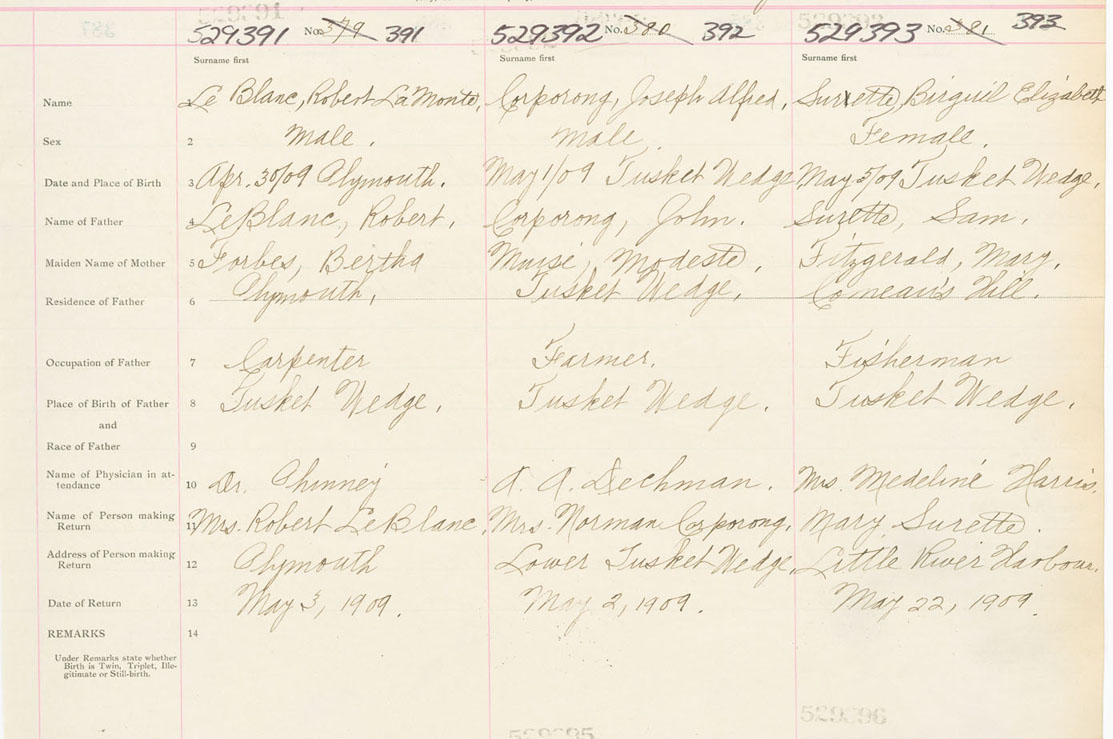 529391 No. 379 391 529392 No. 380 392 529393 No. 381 393
Surname first Surname first Surname first
Name Le Blanc, Robert La Monte, Corporong, Joseph Alfred, Surette, Birguil Elizabeth
Sex 2 Male. Male. Female.
Date and Place of Birth 3 Apr. 30/09 Plymouth. May 1/09 Tusket Wedge May 5/09 Tusket Wedge,
Name of Father 4 LeBlanc, Robert, Corporong, John. Surette, Sam,
Maiden Name of Mother 5 Forbes, Bertha Muise, Modeste, Fitzgerald, Mary,
Residence of Father 6 Plymouth, Tusket Wedge, Comeau's Hill.
Occupation of Father 7 Carpenter Farmer. Fisherman
Place of Birth of Father 8 Tusket Wedge, Tusket Wedge. Tusket Wedge,
and
Race of Father 9
Name of Physician in at-
tendance 10 Dr. Phinney A. A. Dechman. Mrs. Medeline Harris.
Name of Person making
Return 11 Mrs. Robert LeBlanc, Mrs. Norman Corporong, Mary Surette.
Address of Person making
Return 12 Plymouth Lower Tusket Wedge, Little River Harbour,
Date of Return 13 May 3, 1909. May 2, 1909. May 22, 1909.
REMARKS 14
Under Remarks state whether
Birth is Twin, Triplet, Ille-
gitimate or Still-birth.
529396